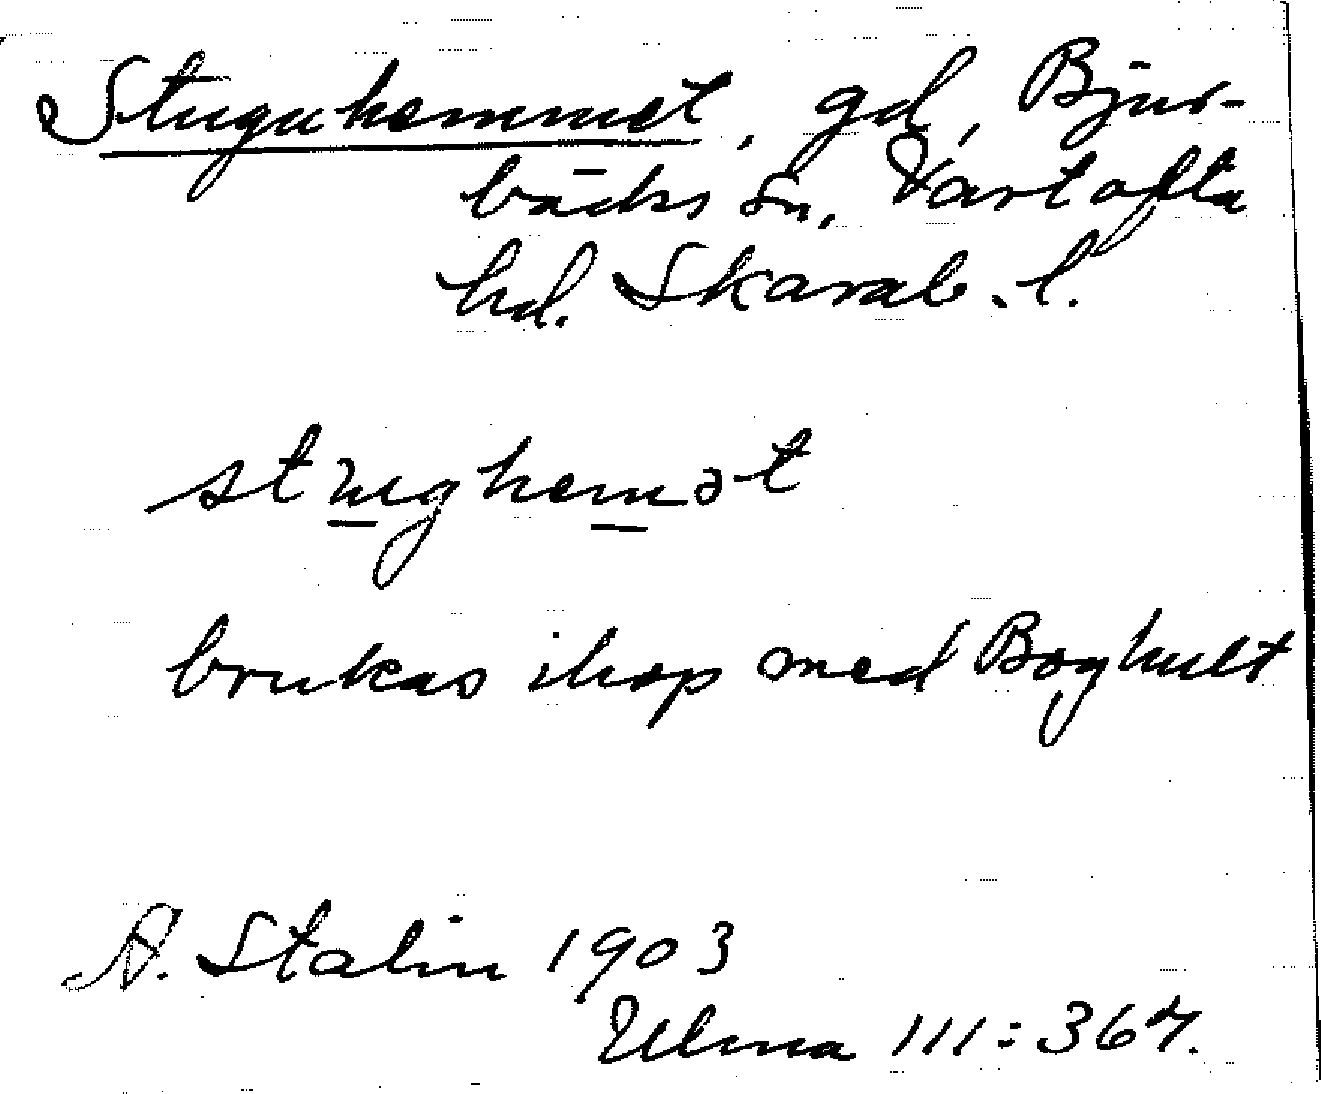 Stuguhemmet, gd, Bjur-
bäcks sn, Vartofta
hd. Skarab. l.
stughemət
brukas ihop med Boghult
A. Stalin 1903
Ulma 111:367.